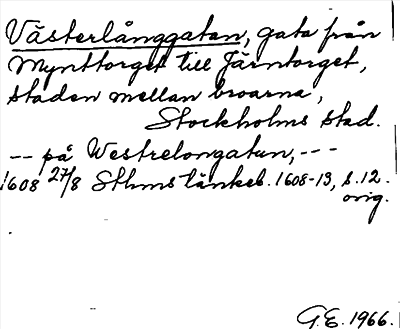 Västerlånggatan, gata från
Mynttorget till Järntorget,
staden mellan broarna,
Stockholms stad.
-- på Westrelongatun, ---
1608 27/8 Sthms tänkeb. 1608-13, s. 12.
orig.
G.E. 1966.